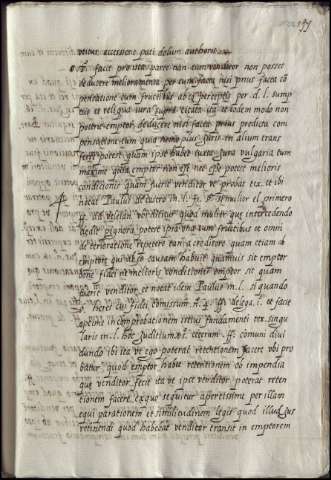 potius accessione pati dolum auctoris
facit pro ista parte nam cum venditor non posset
deducere melioramenta per eum facta nisi prius facta com
pensatione cum fructibus ab eo perceptis per d. l. sump
tus et reliqua iura supra citata ita et eodem modo non
poterit emptor deducere nisi facta prius predicta com
pensatione cum quia nemo plus iuris in alium trans
ferre potest quam ipse habet iuxta iura vulgaria tum
maxime quia emptor non est nec esse potest melioris
conditionis quam fuerit venditor ut probat tex. et ibi
notat Paulus de castro in l. si mulier el primero
ad velleia. vbi dicitur quod mulier que intercedendo
dedit pignora potest ipsa una cum fructibus et omni
deterioratione repetere tam a creditore quam etiam ab
emptore qui ab eo causam habuit quamuis sit emptor
bone fidei et melioris conditionis emptor sit quam
fuerit venditor et notat idem Paulus in l. si quando
heres cui fidei comissum ff. de lega. 1. et facit
aptius in comprobationem istius fundamenti tex. singu
laris in l. hoc Juditium §. ceterum ff. comuni diui
dundo ibi ita ut ego poteram retentionem facere vbi pro
batur quod emptor habet retentionem ob impendia
que venditor fecit ita ut ipse venditor poterat reten
tionem facere ex quo sequitur apertissime per illam
equiparationem et similitudinem legis quod illud ius
retinendi quod habebat venditor transit in emptorem